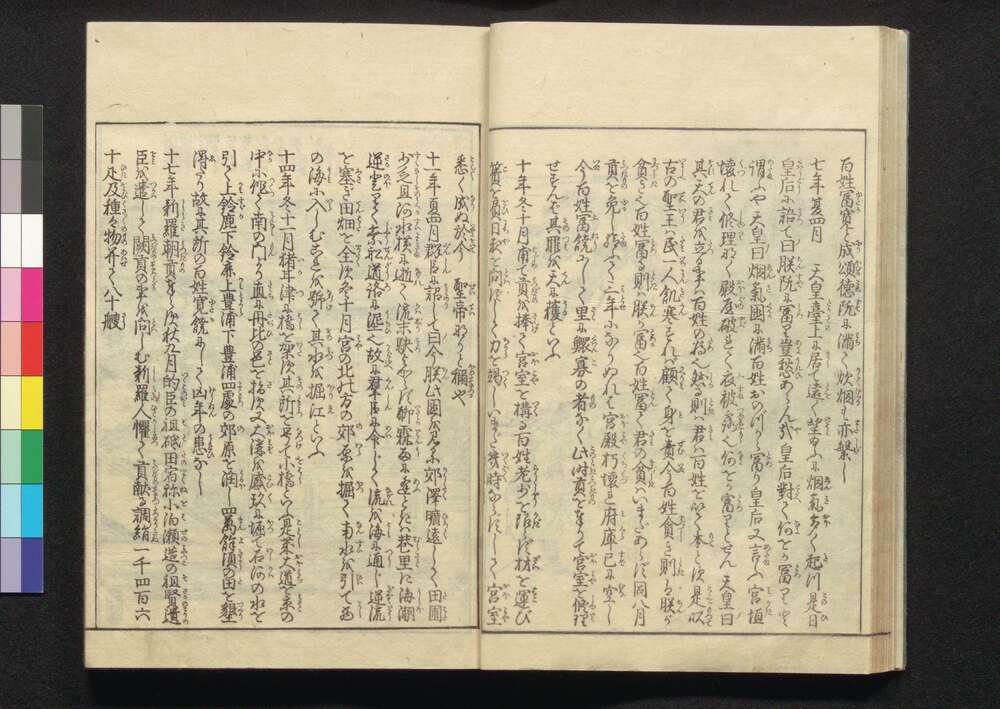 百姓冨寛て成頌徳既に満て炊烟も亦繁し
七年夏四月　天皇臺上に居て遠く望ふに烟氣多く起り是日
皇后に語て曰朕既に冨り豈愁あらんや皇后對て何をか冨りと
謂ふや天皇曰烟氣國に満百姓おのづから冨り皇后又言ふ宮垣
懐れて修理なく殿屋破れて衣被露ふ何をか冨りとせん天皇曰
其天の君を立るまは百姓の為也然る則は君は百姓を以て本とす是以
古の聖王は一人飢寒されは顧て身を責今百姓貧き則は朕か
貧き也百姓冨る則は朕か冨也百姓冨て君の貧はいまだあらず同八月
貢を免ゆるして三年になりぬれは宮殿朽壊れ府庫已に空し
今百姓冨饒にして里に鰥寡の者なく此時貢をもつて宮室を修理
せずんば其罪を天に獲といふ
十年冬十月甫て貢を捧て宮室を構る百姓老少を限らず材を運び
簣を負日夜を問ずして力を竭しいまだ幾時ならずして宮室
悉く成ぬ於今　聖帝なりと稱也
十一年夏四月群臣に詔して曰今朕此國を見るに郊澤曠遠にして田圃
少乏且河の水横に逝て流末駃からず聊霖雨に逢ては巷里に海潮
逆上りて
を塞き田畑を全す冬十月宮の北の方の郊原を掘て南水を引て西
の海に入しむ其水を号て堀江といふ
十四年冬十一月猪甘津に橋を架す其所を号て小橋といふ是歳大道を京の
中に作て南の門より直に丹比の邑に指す又大溝を感玖に堀て石河の水を
引て上鈴鹿下鈴鹿上豊浦下豊浦四處の郊原を潤し四萬餘頃の田を墾
得たり故に其所の百姓寛饒にして凶年の患なし
十七年新羅朝貢せず秋九月的臣の祖砥田宿祢小泊瀬造の祖賢遺
臣を遣して闕貢の事を問しむ新羅人懼て貢献る調絹一千四百六
十疋及種々物并て八十艘